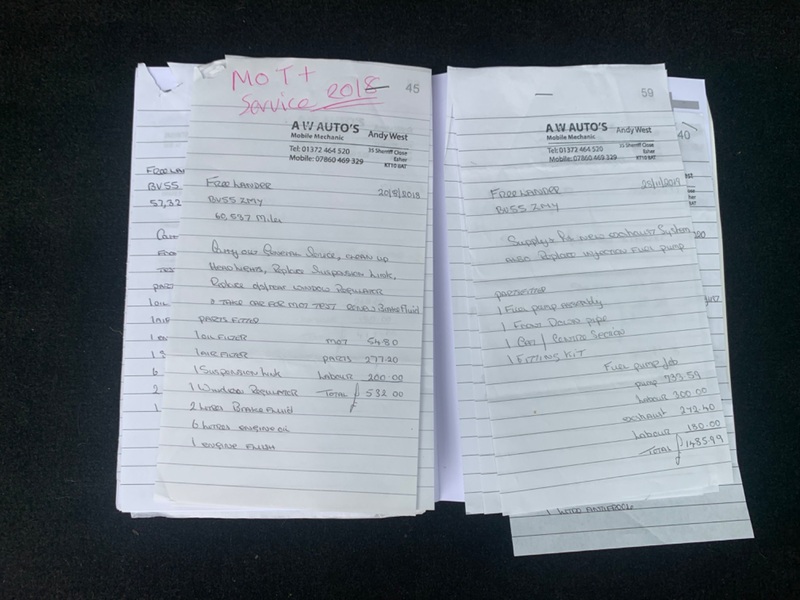 MOT +
Service 2018
45
A W AUTO'S Andy West
Mobile Mechanic
Tel: 01372 464 520
Mobile: 07860 469 329
35 Sherriff Close
Esher
KT10 8AT
FREELANDER 20/8/2018
BV55 ZMY
60,537 Miles
Carry out General Service, CLEAN UP
Replace Suspension Link,
WINDOW REGULATOR
& TAKE CAR FOR MOT TEST RENEW Brake Fluid
PARTS FITTED
1 OIL FILTER MOT 54.80
1 AIR FILTER PARTS 277.20
1 SUSPENSION Link Labour 200.00
1 Window REGULATOR TOTAL £532.00
2 Litres Brake Fluid
6 Litres ENGINE OIL
1 ENGINE FLUSH
59
A.W AUTO'S Andy West
Mobile Mechanic
Tel: 01372 464 520
Mobile: 07860 469 329
35 Sherriff Close
Esher
KT10 8AT
FREELANDER 25/11/2019
BV55 ZMY
Supply & Fit new exhaust System
also Replace INJECTION FUEL PUMP
PARTS FITTED
1 Fuel pump assembly
1 FRONT DOWN PIPE
1 Cat / CENTRE SECTION
1 FITTING KIT
Fuel pump Job
pump 733.59
Labour 300.00
exhaust 272.40
Labour 180.00
TOTAL £1485.99
40
BV55
57,32
1 OIL
1 AIR
6
2
1
1 Litre ANTIFREEZE